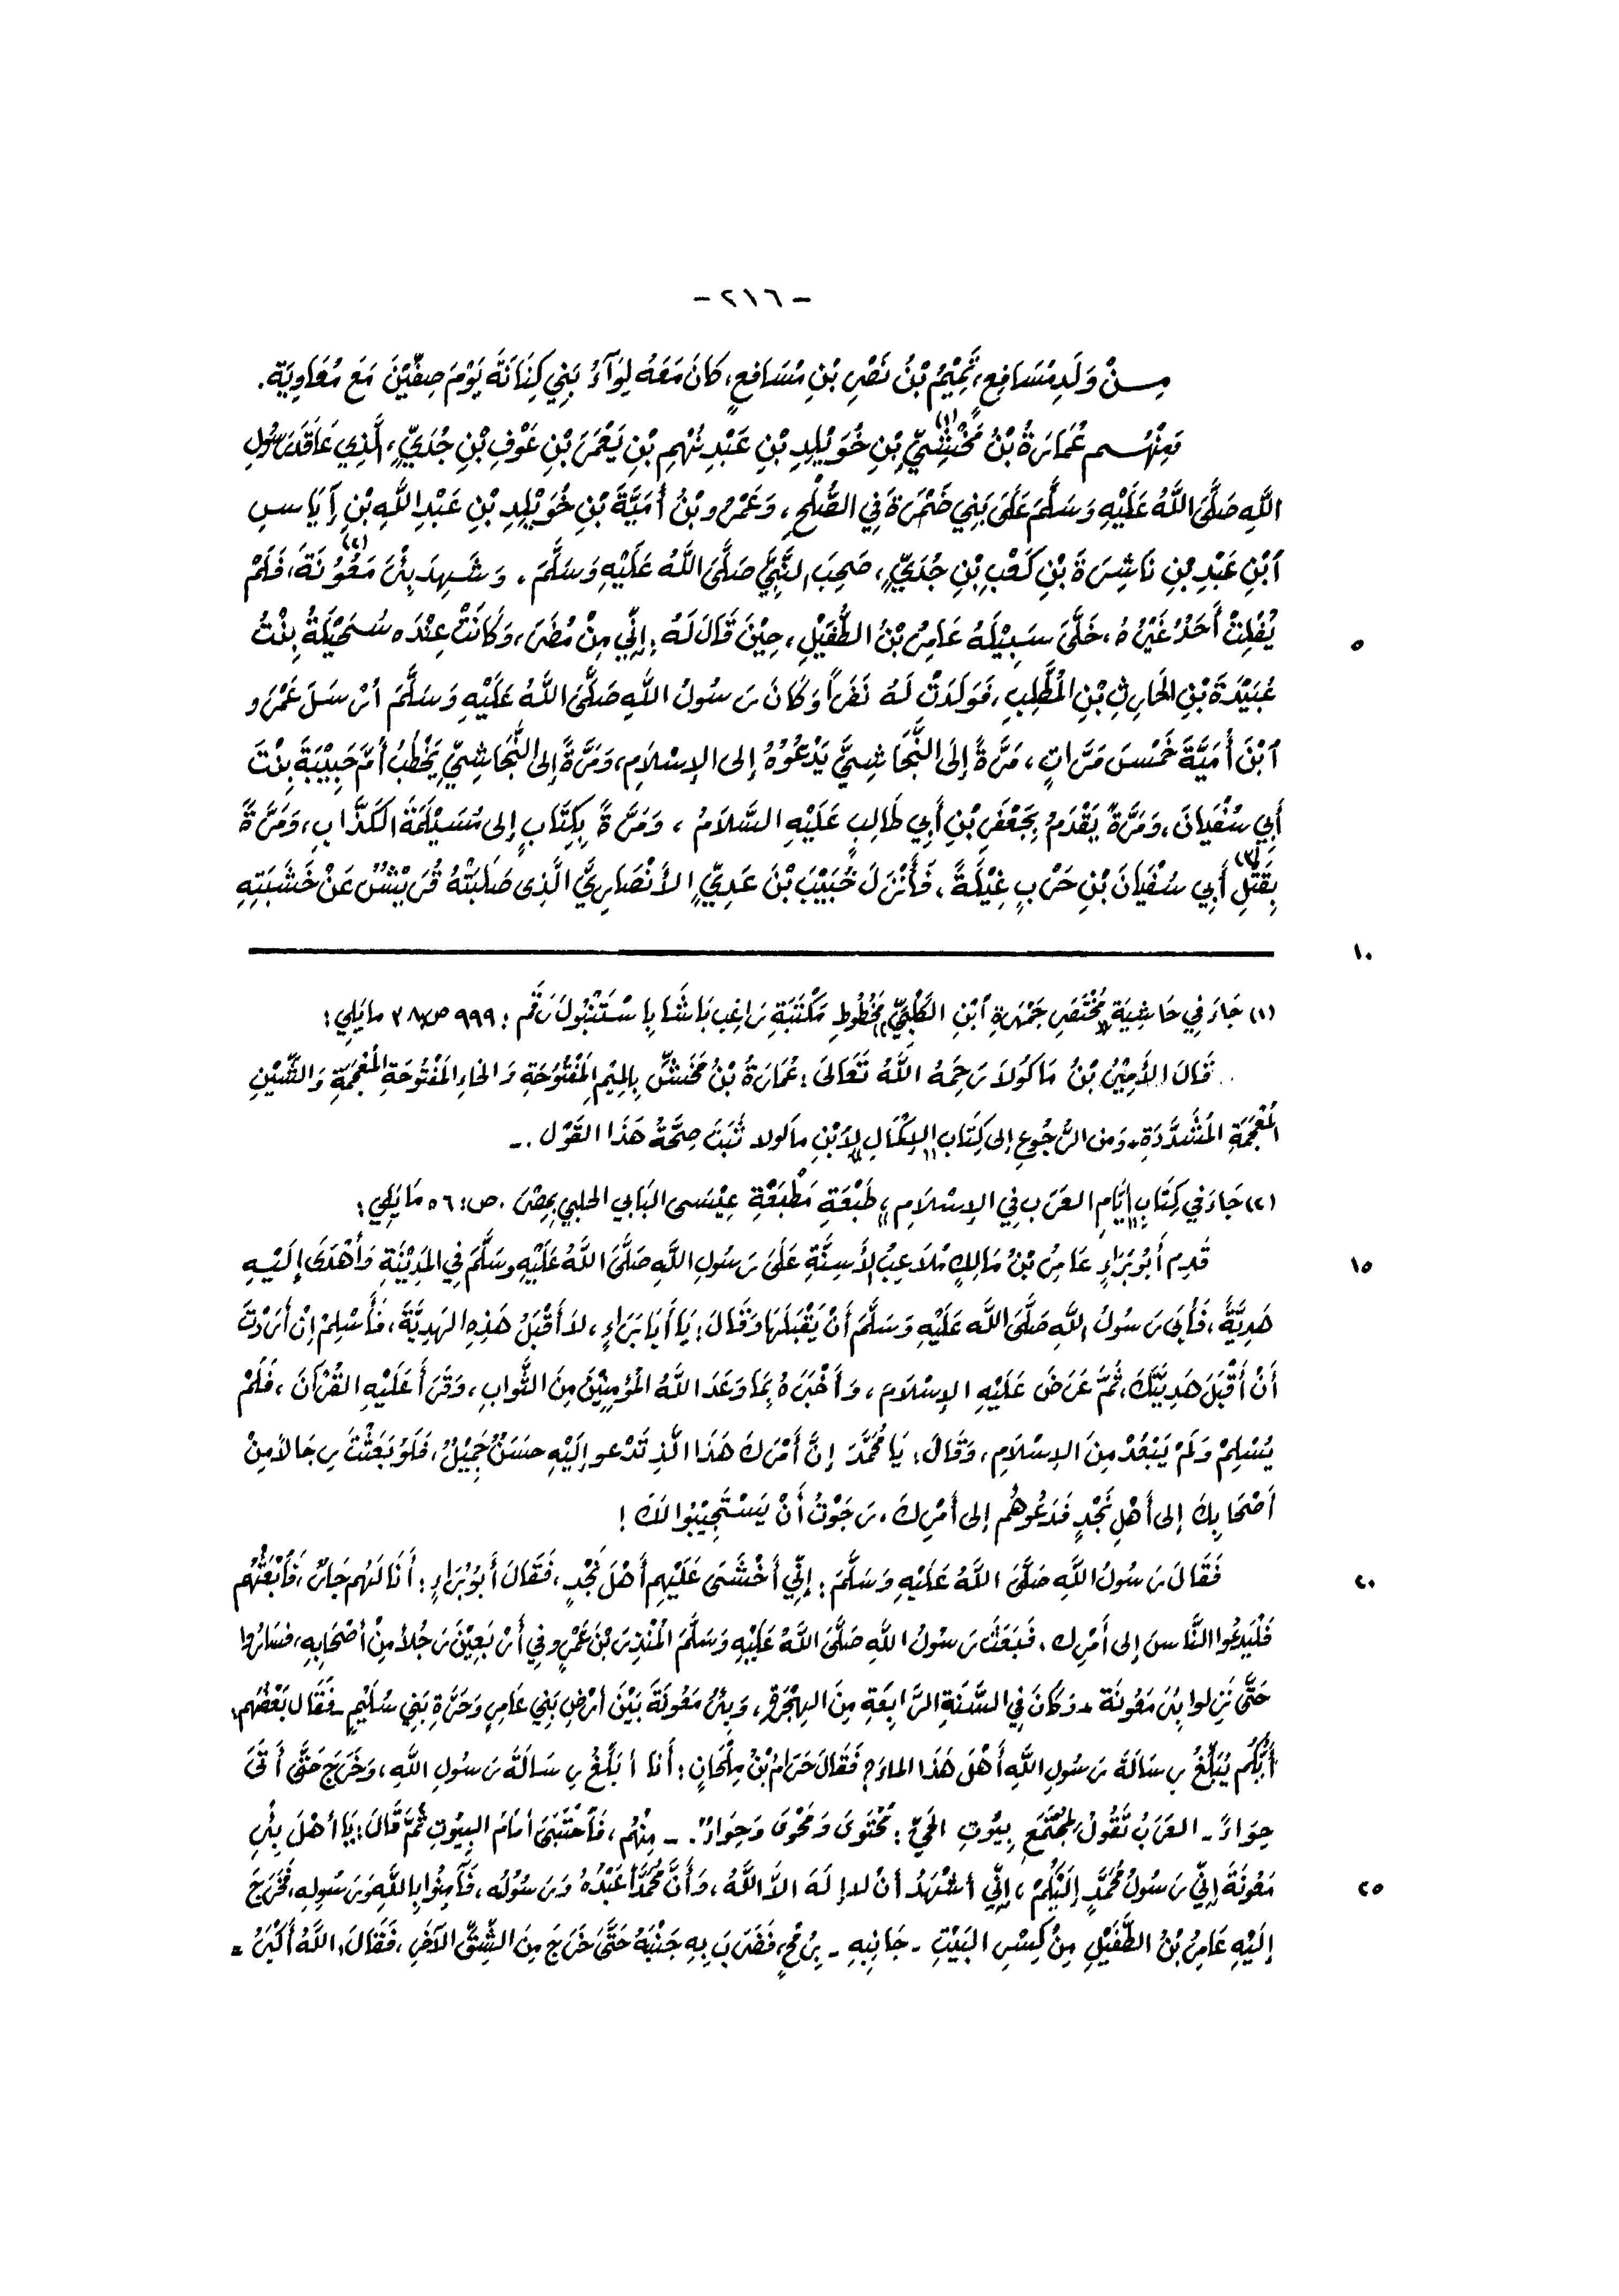 - ٢١٦ -
مِنْ وَلَدِ مُسَافِعٍ، تَمِيْمُ بْنُ نَصْرِ بْنِ مُسَافِعٍ، كَانَ مَعَهُ لِوَآءُ بَنِي كِنَانَةَ يَوْمَ صِفِّيْنَ مَعَ مُعَاوِيَةَ.
وَمِنْهُم عُمَارَةُ بْنُ مَخْشِيِّ(١) بْنِ خُوَيْلِدِ بْنِ عَبْدِ نُهْمِ بْنِ يَعْمَرَ بْنِ عَوْفِ بْنِ جُدَيٍّ، الَّذِي عَاقَدَ رَسُولِ
اللَّهِ صَلَّى اللَّهُ عَلَيْهِ وَسَلَّمَ عَلَى بَنِي ضَمْرَةَ فِي الصُّلْحِ، وَعَمْرُو بْنُ أُمَيَّةَ بْنِ خُوَيْلِدِ بْنِ عَبْدِ اللَّهِ بْنِ إِيَاسِ
ٱبْنِ عَبْدِ بْنِ نَاشِرَةَ بْنِ كَعْبِ بْنِ جُدَيٍّ، صَحِبَ النَّبِيَّ صَلَّى اللَّهُ عَلَيْهِ وَسَلَّمَ. وَشَهِدَ بِئْرَ مَعُونَةَ(٢)، فَلَمْ
يُفْلِتْ أَحَدٌ غَيْرُهُ، خَلَّى سَبِيْلَهُ عَامِرُ بْنُ الطُّفَيْلِ، حِيْنَ قَالَ لَهُ: إِنِّي مِنْ مُضَرَ، وَكَانَتْ عِنْدَه سُخَيْلَةُ بِنْتُ
٥
عُبَيْدَةَ بْنِ الحَارِثِ بْنِ المُطَّلِبِ، فَوَلَدَتْ لَهُ نَفَراً وَكَانَ رَسُولُ اللهِ صَلَّى اللهُ عَلَيْهِ وَسَلَّمَ أَرْسَلَ عَمْرَو
ٱبْنَ أُمَيَّةَ خَمْسَ مَرَّاتٍ، مَرَّةً إِلَى النَّجَاشِيِّ يَدْعُوُهُ إِلى الإِسْلاَمِ، وَمَرَّةً إِلى النَّجَاشِيِّ يَخْطُبُ أُمَّ حَبِيْبَةَ بِنْتَ
أَبِي سُفْيَانَ، وَمَرَّةً يَقْدَمُ بِجَعْفَرِ بْنِ أَبِي طَالِبٍ عَلَيْهِ السَّلاَمُ، وَمَرَّةً بِكِتَابٍ إِلى مُسَيْلَمَةَ الكَذَّابِ، وَمَرَّةً
بِقَتْلِ(٣) أَبِي سُفْيَانَ بْنِ حَرْبٍ غِيْلَةً، فَأَنْزَلَ خُبَيْبَ بْنَ عَدِيٍّ الأَنْصَارِيَّ الَّذِى صَلَبَتْهُ قُرَيْشٌ عَنْ خَشَبَتِهِ
١٠
(١) جَاءَ فِي حَاشِيَةِ "مُخْتَصَرِ جَمْهَرَةِ ٱبْنِ الكَلْبِيِّ" مَخْطُوطِ مَكْتَبَةِ رَاغِب بَاشَا بِاسْتَنْبُولَ رَقْم: ٩٩٩ ص: ٣٨ مايَلِي:
.. قَالَ الأَمِيْرُ بْنُ مَاكُولاَ رَحِمَهُ اللَّهُ تَعَالَى: عُمَارَةُ بْنُ مَخَشِّ بِالمِيْمِ المَفْتُوحَةِ وَالخَاءِ المَفْتُوحَةِ المُعْجَمَةِ وَالشِّيْنِ
المُعْجَمَةِ المُشَدَّدَةِ. وَمن الرُّجُوعِ إِلى كِتَابِ "الإِكْمَالِ" لِابْنِ مَاكولا ثَبَتَ صِحَّةُ هَذَا القَوْل. -
(٢) جَاءَ فِي كِتَابِ "أَيَّامِ العَرَبِ فِي الإِسْلاَمِ" طَبْعَةِ مَطْبَعَةِ عِيْسَى البَابِي الحلبي بِمِصْرَ. ص: ٥٦ مَا يَلِي:
قَدِمَ أَبُو بَرَاءٍ عَامِرُ بْنُ مَالِكٍ مُلاَعِبُ الأَسِنَّةِ عَلَى رَسُولِ اللَّهِ صَلَّى اللَّهُ عَلَيْهِ وسَلَّمَ فِي المَدِيْنَةِ وَأَهْدَى إِلَيْهِ
١٥
هَدِيَّةً، فَأَبَى رَسُولُ اللهِ صَلَّى اللَّه عَلَيْهِ وَسَلَّمَ أَنْ يَقْبَلَهَا وَقَالَ: يَا أَبَا بَرَاءٍ، لاَ أَقْبَلُ هَذِهِ الهَدِيَّةَ، فَأَسْلِمْ إِنْ أَرَدْتَ
أَنْ أَقْبَلَ هَدِيَّتَكَ، ثُمَّ عَرَضَ عَلَيْهِ الإِسْلاَمَ، وَأَخْبَرَهُ بِمَا وَعَدَ اللَّهُ المُؤْمِنِيْنَ مِنَ الثَّوابِ، وَقَرَأَ عَلَيْهِ القُرْآنَ، فَلَمْ
يُسْلِمْ وَلَمْ يَبْعُدْ مِنَ الإِسْلاَمِ، وَقَالَ: يَا مُحَمَّدَ إِنَّ أَمْرَكَ هَذَا الَّذِ تَدْعو إِلَيْهِ حسَنٌ جَمِيْلٌ، فَلَو بَعَثْتَ رِجَالاً مِنْ
أَصْحَابِكَ إِلى أَهْلِ نَجْدٍ فَدَعُوهُم إِلى أَمْرِكَ، رَجَوْتُ أَنْ يَسْتَجِيْبُوا لَكَ!
فَقَالَ رَسُولُ اللَّهِ صَلَّى اللَّهُ عَلَيْهِ وَسَلَّمَ: إِنِّي أَخْشَى عَلَيْهِم أَهْلَ نَجْدٍ، فَقَالَ أَبُو بَرَاءٍ: أَنَا لَهُم جَارٌ، فَٱبْعَثْهُم
٢٠
فَلْيَدعُوا النَّاسَ إِلى أَمْرِك. فَبَعَثَ رَسُولُ اللهِ صَلَّى اللَّهُ عَلَيْهِ وَسَلَّمَ المُنْذِرَ بْنَ عَمْرٍو فِي أَرْبَعِيْنَ رَجُلاً مِنْ أَصْحَابِهِ، فسَارُوا
حَتَّى نَزلوا بِئرَ مَعُونَةَ - وَكَانَ فِي السَّنَةِ الرَّابِعَةِ مِنَ الهِجْرَةِ، وَبِئرُ مَعُونَةَ بَيْنَ أَرْضِ بَنِي عَامِرٍ وَحَرَّةِ بَنِي سُلَيْمٍ - فَقَال بَعْضُهُم:
أَيُّكُم يُبَلِّغُ رِسَالَةَ رَسُولِ اللَّهِ أَهْلَ هَذَا المَاءِ؟ فَقَالَ حَرَامُ بْنُ مِلْحَانٍ: أَنَا أُبَلِّغُ رِسَالَةَ رَسُولِ اللهِ، وَخَرَجَ حَتَّى أَتَى
حِوَاءً - العَرَبُ تَقُولُ لِمُجْتَمَعِ بِيُوتِ الحَيِّ: مُحْتَوَى وَمَحْوَى وَحِوَاءٌ. - مِنْهُم، فَٱحْتَبَى أَمَامَ البِيُوتِ ثُمَّ قَالَ: يَا أَهْلَ بِئْرِ
مَعُونَةَ إِنِّي رَسُولُ مُحَمَّدٍ إِلَيْكُمْ، إِنِّي أَشْهَدُ أَنْ لا إِلَهَ إلاَّ اللَّهُ، وَأَنَّ مُحَمَّداً عَبْدُهُ وَرَسُولُه، فَآمِنُوا بِاللَّهِ وَرَسُولِهِ، فَخَرَجَ
٢٥
إِلَيْهِ عَامِرُ بْنُ الطُّفَيْلِ مِنْ كِسْرِ البَيْتِ - جَانِبِهِ - بِرُمْحٍ، فَضَرَبَ بِهِ جَنْبَهُ حَتَّى خَرَجَ مِنَ الشِّقِّ الآخَرِ، فَقَالَ: اللَّهُ أَكْبَرُ =